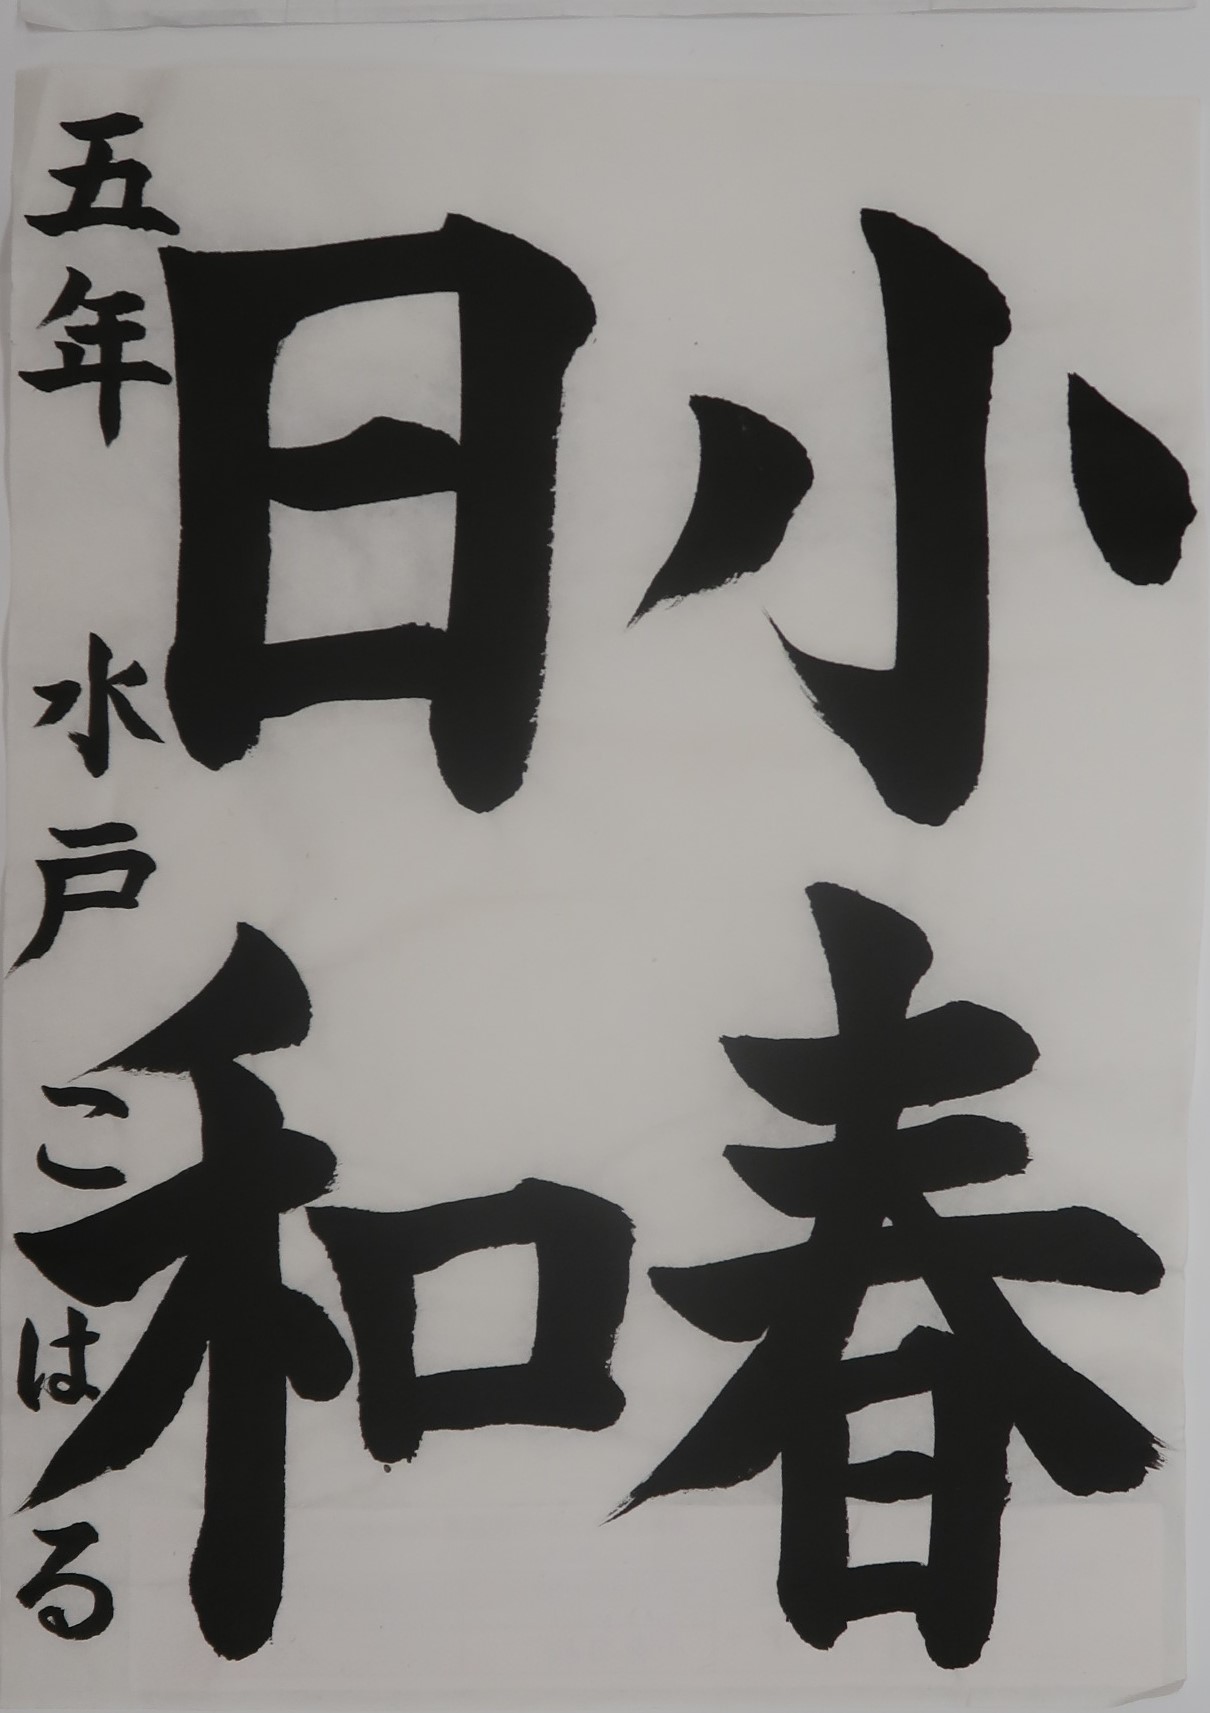 小春
日和
五年 水戸こはる